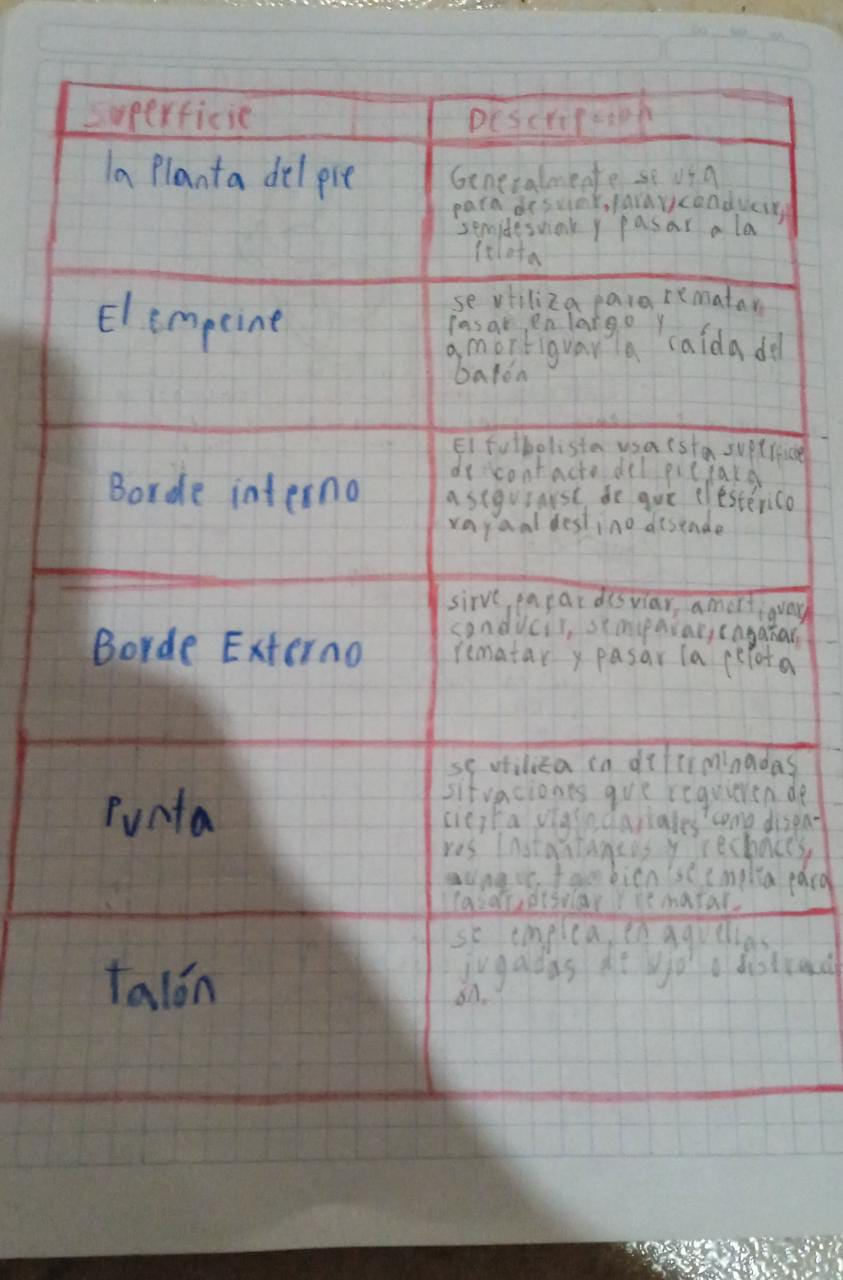 Superficie
Descripción
la Planta del pie
Generalmente se usa
para desviar, parar, conducir,
semidesviar y pasar a la
pelota
El empeine
se utiliza para rematar,
pasar en largo y
amortiguar la caída del
balón
Borde interno
El futbolista usa esta superficie
de contacto del pie para
asegurarse de que el esférico
vaya al destino deseado
Borde Externo
sirve parar desviar, amortiguar,
conducir, semiparar, engañar,
rematar y pasar la pelota
Punta
se utiliza en determinadas
situaciones que requieren de
cierta tales como dispa-
ros instantaneos y rechaces,
aunque tambien se emplea para
pasar, desviar y rematar.
Talón
se emplea en aquellas
jugadas de lujo o distracci
ón.